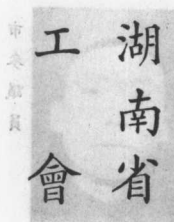 湖南省
工會